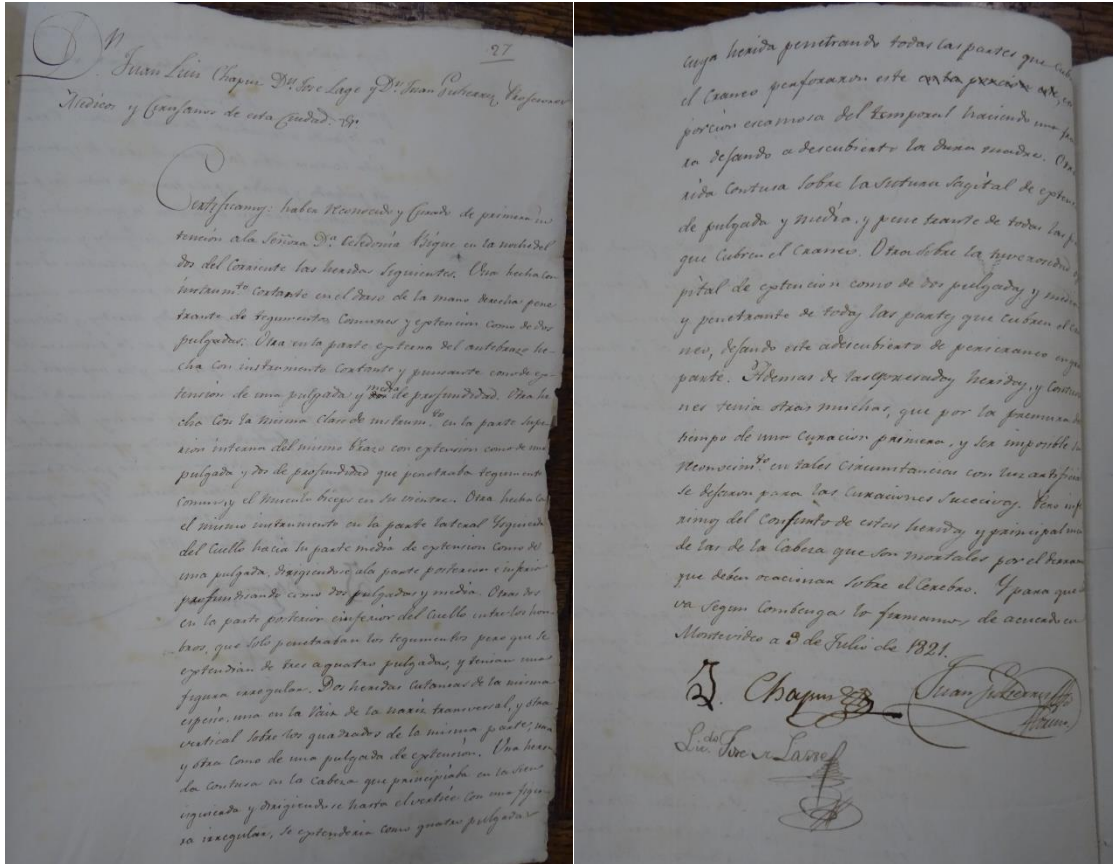 27
Dn
Juan Luis Chapuz Dn. Jose Lage y Dn. Juan Gutierrez, Profesores
Medicos y Cirujanos de esta Ciudad. &a.
Certificamos: haber reconocido y Curado de primera in
tencion ala Señora Da. Celedonia en la noche del
dos del Corriente las heridas Seguientes. Una hecha con
instrumto. Cortante en el dorso de la mano derecha pene
trante de tegumentos Comunes y extencion como de dos
pulgadas. Otra en la parte externa del antebrazo he-
cha con instrumento Cortante y punsante como de ex-
tension de una pulgada, y media de profundidad. Otra he
cha con la misma clase de instrumto. en la parte supe
rior interna del mismo brazo con extension como de una
pulgada y dos de profundidad que penetraba tegumento
comun, y el musculo biceps en su vientre. Otra hecha con
el mismo instrumento en la parte lateral Ysquierda
del Cuello hacia su parte media de extension como de
una pulgada, dirigiendose ala parte posterior e inferior
profundisando como dos pulgadas y media. Otras dos
en la parte posterior einferior del Cuello entre los hom
bros, que solo penetraban los tegumentos pero que se
extendian de tres a quatro pulgadas, y tenian una
figura irregular. Dos heridas cutaneas de la misma
especie, una en la Raiz de la nariz transversal, y otra
vertical sobre los quadrados de la misma parte, una
y otra como de una pulgada de extension. Una heri
da contusa en la Cabeza que principiaba en la sien
isquierda y dirigiendose hasta elvertice con una figu
ra irregular, se extenderia como quatro pulgadas
Cuya herida penetrando todas las partes que Cub
el Craneo perforaron este
porcion escamosa del temporal haciendo una
ra dejando a descubierto la dura madre. Otra
rida Contusa sobre la Sutura Sagital de exten
de pulgada y media, y penetrante de todas las
que Cubren el Craneo. Otra sobre la tuverosidad
pital de extencion como de dos pulgadas y media
y penetrante de todas las partes que cubren el
neo, dejando este adescubierto de pericraneo en
parte. Ademas de las expresadas heridas, y Contu
nes tenia otras muchas, que por la premura de
tiempo de una curacion primera, y ser imposible
reconocimto. en tales Circunstancias con luz artificial
se dejaron para las Curaciones Sucecivas. Pero infe
rimos del Conjunto de estas heridas y principalme
de las de la Cabeza que son mortales por el
que deben ocacionar sobre el Cerebro. Y para que
va segun Combenga lo firmamos de acuerdo en
Montevideo a 3 de Julio de 1821.
J. L. Chapuz
Juan Gutierrez
Lic.do Jose